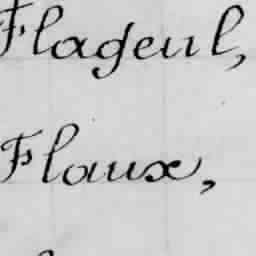 Flageul,
Flaux,